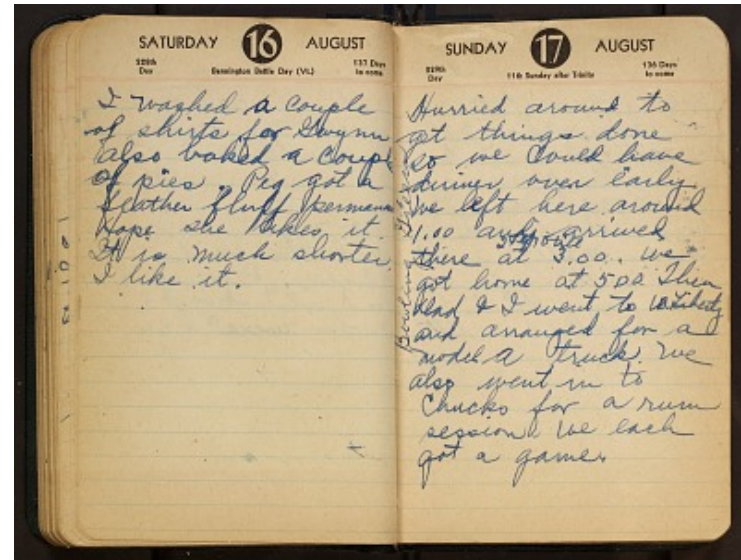 SATURDAY 16 AUGUST
228th Day
Bennington Battle Day (Vt.)
137 Days to come
I washed a couple
of shirts for Gwynn
also baked a coupl
of pies. Peg got a
feather fluff permane
hope she likes it.
It is much shorter
I like it.
SUNDAY 17 AUGUST
229th Day
11th Sunday after Trinity
136 Days to come
Hurried around to
get things done
so we could have
dinner over early
We left here around
1.00 and arrived
there at 3.00. We
got home at 5 00 Then
Mad & I went to W Liberty
and arranged for a
model A truck. We
also went in to
Chucks for a rum
session We each
got a game.
Bowling